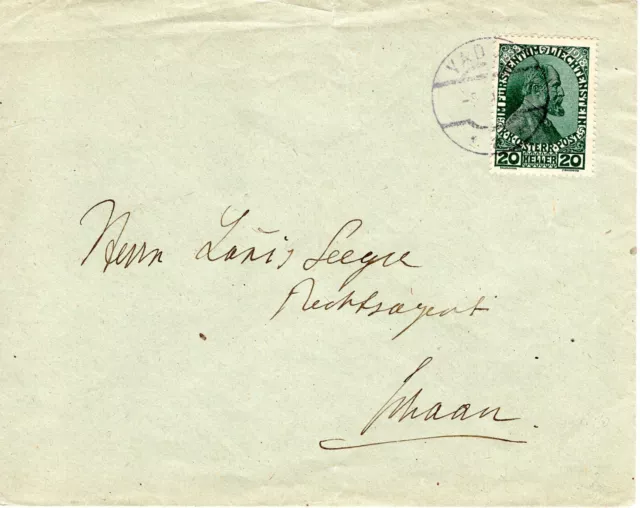 VAD
1858 1918
IM FÜRSTENTUM LIECHTENSTEIN
K.K. ÖSTERR. POST
20 HELLER 20
Herrn Louis Seeger
Rechtsagent
Schaan.